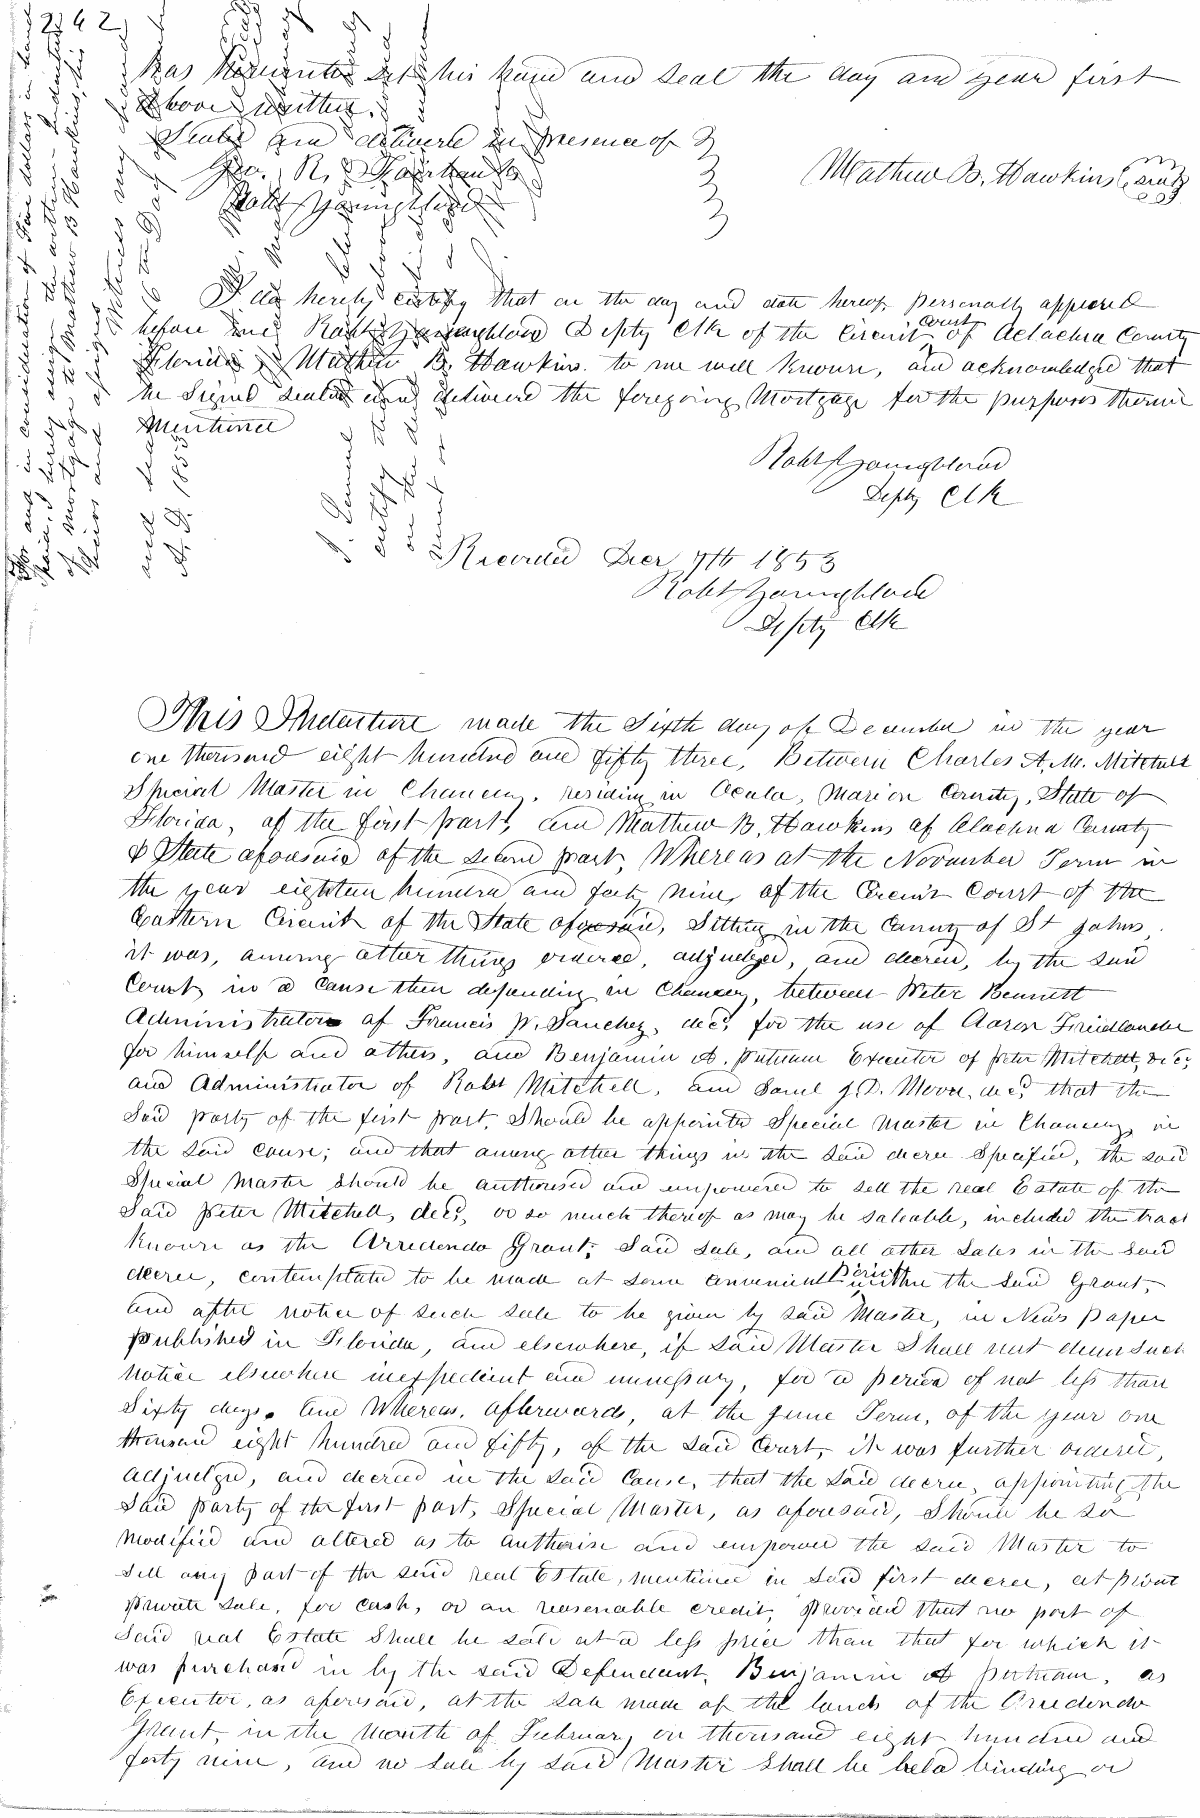 242
has hereunto set his hand and seal the day and year first
above written.
Sealed and delivered in presence of
Geo. R. Fairbanks
Mathew B. Hawkins (seal)
Robt Youngblood
I do hereby certify that on the day and date hereof personally appeared
before me Robt Youngblood Depty Clk of the Circuit court of Alachua County
Florida, Mathew B. Hawkins. to me well known, and acknowledged that
he Signed sealed and delivered the foregoing Mortgage for the purposes therein
mentioned
Robt Youngblood
Depty Clk
Recorded Decr 7th 1853
Robt Youngblood
Depty Clk
For and in consideration of Five dollars in hand
I hereby assign the within Indenture
of mortgage to Mathew B Hawkins, his
heirs and assigns
Witness my hand
and seal 16th Day
A.D. 1855
This Indenture made the Sixth day of December in the year
one thousand eight hundred and fifty three, Between Charles A. M. Mitchell
Special Master in Chancery, residing in Ocala, Marion County, State of
Florida, of the first part, and Mathew B. Hawkins of Alachua County
& State aforesaid of the second part, Whereas at the November Term in
the year eighteen hundred and forty nine, of the Circuit Court of the
Eastern Circuit of the State aforesaid, Sitting in the County of St Johns,
it was, among other things ordered, adjudged, and decreed, by the said
Court, in a cause then depending in Chancery, between Peter Bennett
Administrator of Francis P. Sanchez, decd for the use of Aaron Friedlander
for himself and others, and Benjamin A. Putnam Executor of Peter Mitchell, decd
and Administrator of Robt Mitchell, and Saml J. D. Moor, decd that the
Said party of the first part, Should be appointed Special Master in Chancery, in
the said cause; and that among other things in the said decree Specified, the said
Special Master should be authorised and empowered to sell the real Estate of the
Said Peter Mitchell, decd, or so much thereof as may be saleable, included the tract
known as the Arredondo Grant; Said sale, and all other sales in the said
decree, contemplated to be made at some convenient Point within the said Grant,
and after notice of such sale to be given by said Master, in News paper
published in Florida, and elsewhere, if said Master Shall not deem such
notice elsewhere inexpedient and unnecessary, for a period of not less than
Sixty days. And Whereas, afterwards, at the June Term, of the year one
thousand eight hundred and fifty, of the said Court, it was further ordered,
adjudged, and decreed in the said Cause, that the said decree, appointing the
Said party of the first part, Special Master, as aforesaid, Should be so
modified and altered as to authorise and empower the said Master to
sell any part of the said real Estate, mentioned in said first decree, at privat
private sale, for cash, or on reasonable credit, provided that no part of
Said real Estate Shall be sold at a less price than that for which it
was purchased in by the said Defendant, Benjamin A Putnam, as
Executor, as aforesaid, at the sale made of the lands of the Arredondo
Grant, in the Month of February, on thousand eight hundred and
forty nine, and no sale by said Master shall be held binding or